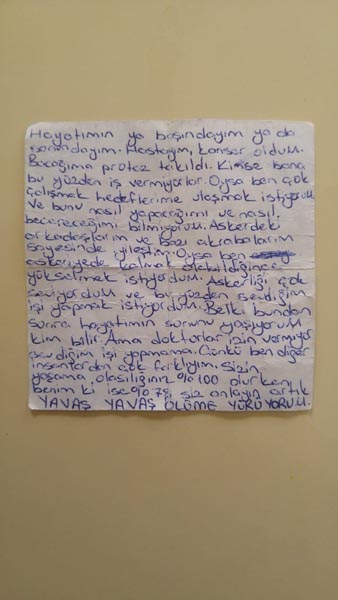 Hayatımın ya başındayım ya da
sonundayım. Hastayım, kanser oldum.
Bacağıma protez takıldı. Kimse bana
bu yüzden iş vermiyorlar. Oysa ben çok
çalışmak hedeflerime ulaşmak istiyorum
ve bunu nasıl yapacağımı ve nasıl
becereceğimi bilmiyorum. Askerdeki
arkadaşlarım ve bazı akrabalarım
sayesinde iyileştim. Oysa ben
askeriyede kalmak alabildiğince
yükselmek istiyordum. Askerliği çok
seviyordum ve bu yüzden sevdiğim
işi yapmak istiyordum. Belki bundan
sonra hayatımın sonunu yaşıyorum
kim bilir. Ama doktorlar izin vermiyor
sevdiğim işi yapmama. Çünkü ben diğer
insanlardan çok farklıyım. Sizin
yaşama olasılığınız %100 olurken
benim ki ise %78, siz anlayın artık
YAVAŞ YAVAŞ ÖLÜME YÜRÜYORUM.